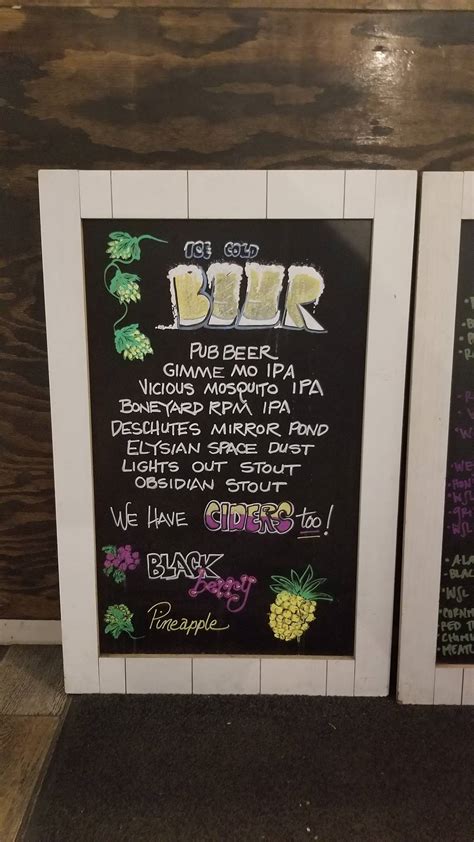 ICE COLD
BEER
PUB BEER
GIMME MO IPA
VICIOUS MOSQUITO IPA
BONEYARD RPM IPA
DESCHUTES MIRROR POND
ELYSIAN SPACE DUST
LIGHTS OUT STOUT
OBSIDIAN STOUT
WE HAVE CIDERS too!
BLACK
berry
Pineapple